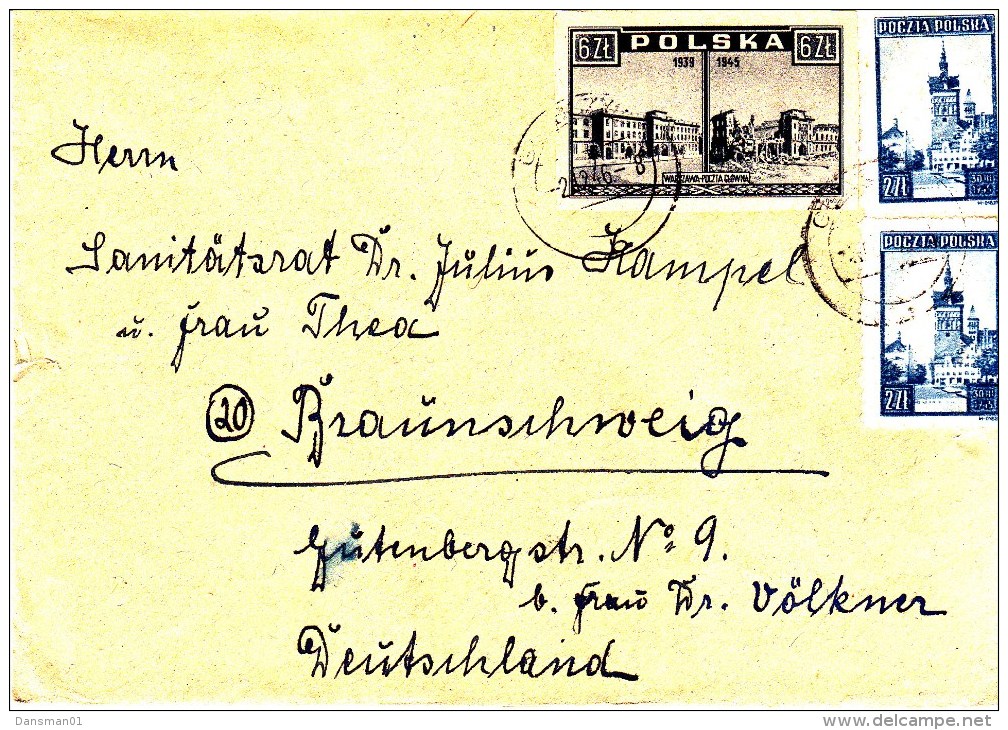 6 ZŁ POLSKA 6 ZŁ
1939 1945
WARSZAWA-POCZTA GŁÓWNA
POCZTA POLSKA
2 ZŁ
POCZTA POLSKA
2 ZŁ
Herrn
Sanitätsrat Dr. Julius Hampel
u. Frau Thea
(20) Braunschweig
Gutenbergstr. No 9.
b. Frau Dr. Völkner
Deutschland
Dansman01
www.delcampe.net